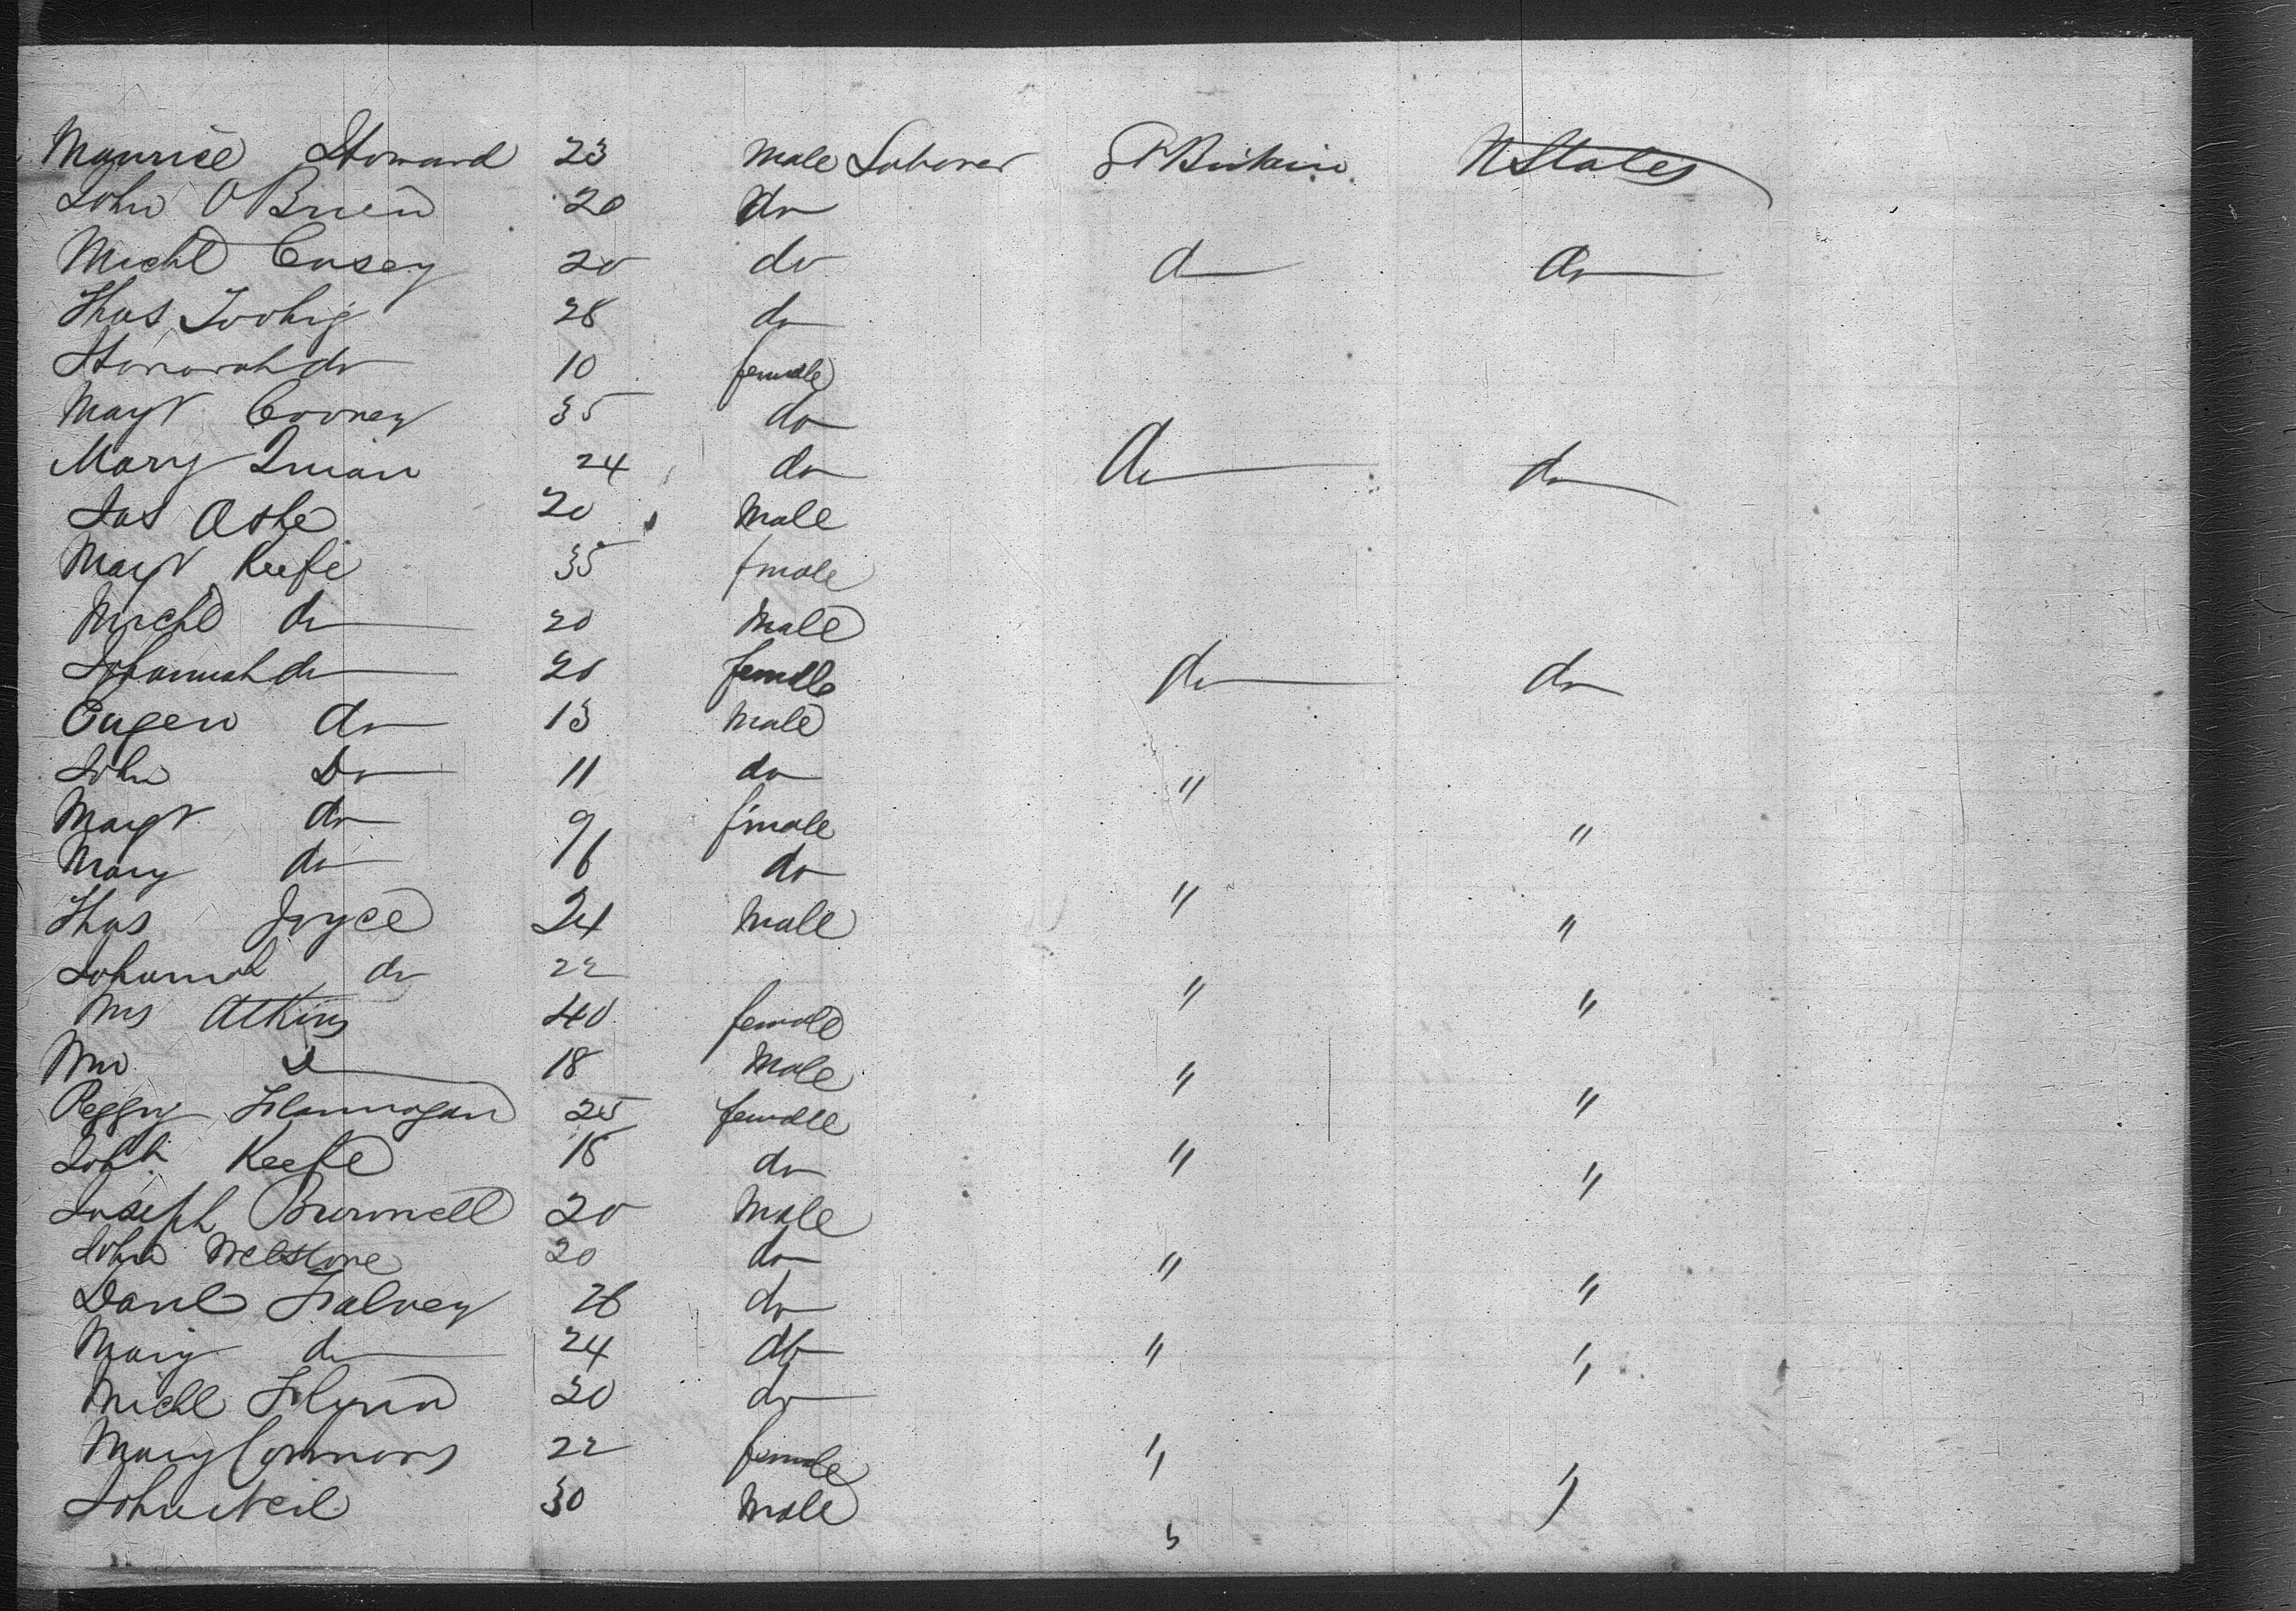 Maurice Howard 23 Male Laborer Gt Britain U States
John O Brien 20 do
Michl Casey 20 do do do
Thos Twohig 28 do
Honorah do 10 female
Margt Cooney 35 do
Mary Quian 24 do do do
Jas Ashe 20 Male
Margt Keefe 35 female
Michl do 20 Male
Johannah do 20 female do do
Eugen do 13 Male
John Do 11 do "
Margt do 9 female "
Mary do 6 do
Thos Joyce 24 Male " "
Johannah do 22 " "
Mrs Atkins 40 female
Wm D 18 Male "
Peggy Flannagan 25 female "
Keefe 18 do " "
Joseph Burnnell 20 Male
John 20 do " "
Danl Falvey 26 do
Mary do 24 do " "
Michl Flynn 20 do
Mary Connors 22 female " "
John Neil 30 Male